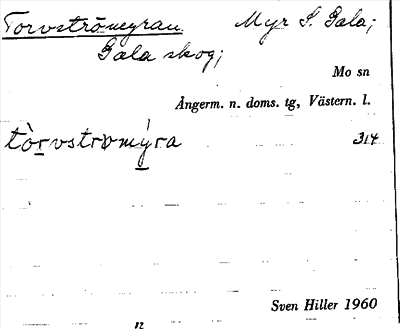 Torvströmyran Myr S. Gala;
Gala skog;
Mo sn
Ångerm. n. doms. tg, Västern. l.
tòrvstrømýra 314
Sven Hiller 1960
12